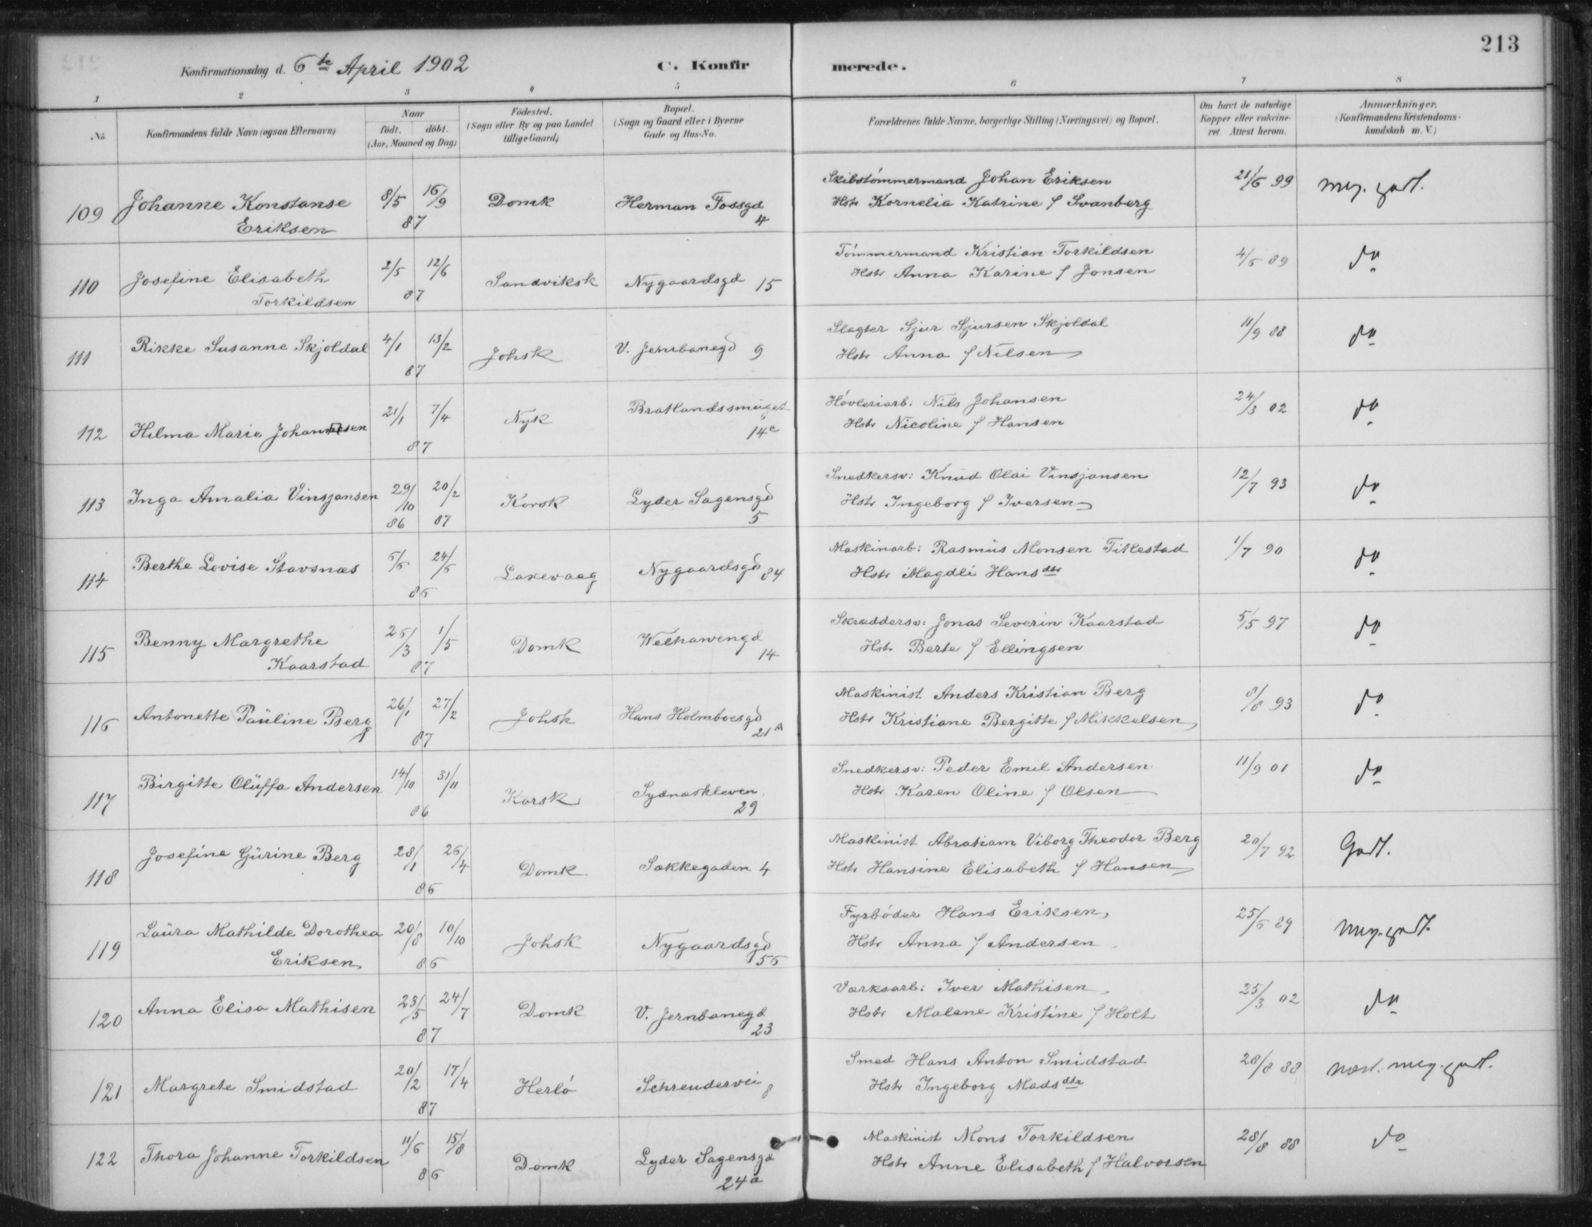 213
Konfirmationsdag d. 6te April 1902
C. Konfirmerede.
1 2 3 4 5 6 7 8
No. Konfirmandens fulde Navn (ogsaa Efternavn) Naar født. døbt. (Aar, Maaned og Dag) Fødested. (Sogn eller By og paa Landet tillige Gaard) Bopæl. (Sogn og Gaard eller i Byerne Gade og Hus-No. Forældrenes fulde Navne, borgerlige Stilling (Næringsvei) og Bopæl. Om havt de naturlige Kopper eller vakcineret. Attest herom. Anmærkninger. (Konfirmandens Kristendomskundskab m. V.)
109 Johanne Konstanse Eriksen 8/5 16/9 87 Domk Herman Fossgd 4 Skibstømmermand Johan Eriksen
Hstr Kornelia Katrine f Svanberg 21/6 99 meg. godt.
110 Josefine Elisabeth Torkildsen 2/5 12/6 87 Sandviksk Nygaardsgd 15 Tømmermand Kristian Torkildsen
Hstr Anna Karine f Jonsen 4/5 89 do
111 Rikke Susanne Skjoldal 4/1 13/2 87 Johsk V. Jernbanegd 9 Slagter Sjur Sjursen Skjoldal
Hstr Anna f Nilsen 11/9 88 do
112 Hilma Marie Johannesen 21/1 7/4 87 Nyk Bratlandssmuget 14c Høvleriarb: Nils Johansen
Hstr Nicoline f Hansen 24/3 02 do
113 Inga Amalia Vinsjansen 29/10 86 20/2 87 Korsk Lyder Sagensgd 5 Snedkersv: Knud Olai Vinsjansen
Hstr Ingeborg f Iversen 12/7 93 do
114 Berthe Lovise Stavsnæs 5/5 24/5 86 Laxevaag Nygaardsgd 84 Maskinarb: Rasmus Monsen Titlestad
Hstr Magdli Hansdtr 1/7 90 do
115 Benny Margrethe Kaarstad 25/3 1/5 87 Domk Welhavengd 14 Skræddersv: Jonas Severin Kaarstad
Hstr Berte f Ellingsen 5/5 97 do
116 Antonette Pauline Berg 26/1 27/2 87 Johsk Hans Holmboesgd 21a Maskinist Anders Kristian Berg
Hstr Kristiane Bergitte f Mikkelsen 8/8 93 do
117 Birgitte Oluffa Andersen 14/10 31/11 86 Korsk Sydnæskleven 29 Snedkersv: Peder Emil Andersen
Hstr Karen Oline f Olsen 11/9 01 do
118 Josefine Gurine Berg 28/1 26/4 86 Domk Sækkegaden 4 Maskinist Abraham Viborg Theodor Berg
Hstr Hansine Elisabeth f Hansen 20/7 92 Godt.
119 Laura Mathilde Dorothea Eriksen 20/8 10/10 86 Johsk Nygaardsgd 55 Fyrbøder Hans Eriksen
Hstr Anna f Andersen 25/5 89 Meg. godt.
120 Anna Elisa Mathisen 23/5 24/7 87 Domk V. Jernbanegd 23 Værksarb: Iver Mathisen
Hstr Malene Kristine f Holt 25/3 02 do
121 Margrete Smidstad 20/2 17/4 87 Herlø Schreudervei 8 Smed Hans Anton Smidstad
Hstr Ingeborg Madsdtr 28/8 88 næst. meg. godt.
122 Thora Johanne Torkildsen 11/6 15/8 86 Domk Lyder Sagensgd 24a Maskinist Mons Torkildsen
Hstr Anne Elisabeth f Halvorsen 28/8 88 do